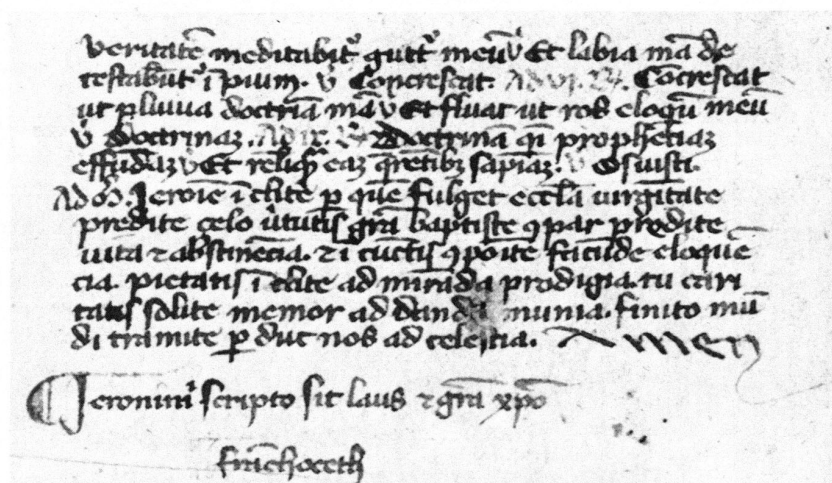 veritatē meditabit᷑ gutt᷑ meū v̓ Et labia mā de
testabūt᷑ īpium. v̓ Concrescat. Ad vi. R. Cōcrescat
ut pluvia doctrīa mā v̓ Et fluat ut ros eloqū meū
v̓ Doctrinaʒ. Ad ix. R Doctrinā qi prophetiaʒ
effūdaʒ v̓ Et relīqʒ eaʒ q̄rētibʒ sapīaʒ. v̓
Ad Jeroīe īclite per quē fulget eccl̄a virgītate
predite celo v̓tutis grā baptiste ꝯpar predite
vita ⁊ abstinēcia. ⁊ī cūctis ꝯpoīte fecūde eloquē
cia. pietatis īclite ad mirāda prodigia. tu cari
tatis solite memor ad dandā munia. finito mū
di tramite per duc nos ad celestia. Amen
Jeronimi scripto sit laus ⁊ grā xpō